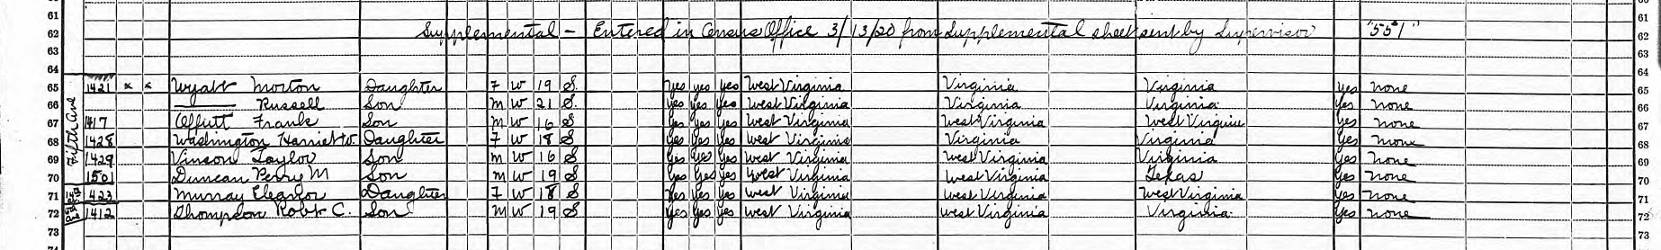 61 61
62 Supplemental – Entered in Census Office 3/13/20 from Supplemental sheet sent by Supervisor "551" 62
63 63
64 64
65 1421 x x Wyatt Morton Daughter F W 19 S. Yes Yes Yes West Virginia Virginia Virginia Yes None 65
66 —— Russell Son M W 21 S. Yes Yes Yes West Virginia Virginia Virginia Yes None 66
67 1417 Offutt Frank Son M W 16 S Yes Yes Yes West Virginia West Virginia West Virginia Yes None 67
68 1428 Washington Harriet W. Daughter F W 18 S Yes Yes Yes West Virginia Virginia Virginia Yes None 68
69 1429 Vinson Taylor Son M W 16 S Yes Yes Yes West Virginia West Virginia Virginia Yes None 69
70 1501 Duncan Perry M Son M W 19 S Yes Yes Yes West Virginia West Virginia Texas Yes None 70
71 423 Murray Eleanor Daughter F W 18 S Yes Yes Yes West Virginia West Virginia West Virginia Yes None 71
72 1412 Thompson Robt C. Son M W 19 S Yes Yes Yes West Virginia West Virginia Virginia Yes None 72
73 73
Fifth Ave